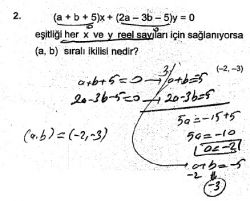 2. (a + b + 5)x + (2a – 3b – 5)y = 0
eşitliği her x ve y reel sayıları için sağlanıyorsa
(a, b) sıralı ikilisi nedir?
(–2, –3)
a+b+5=0 → 3/ a+b=5
2a-3b-5=0 → 2a-3b=5
5a=-15+5
5a=-10
a=-2
(a,b)=(-2,-3)
a+b=-5
-2
-3